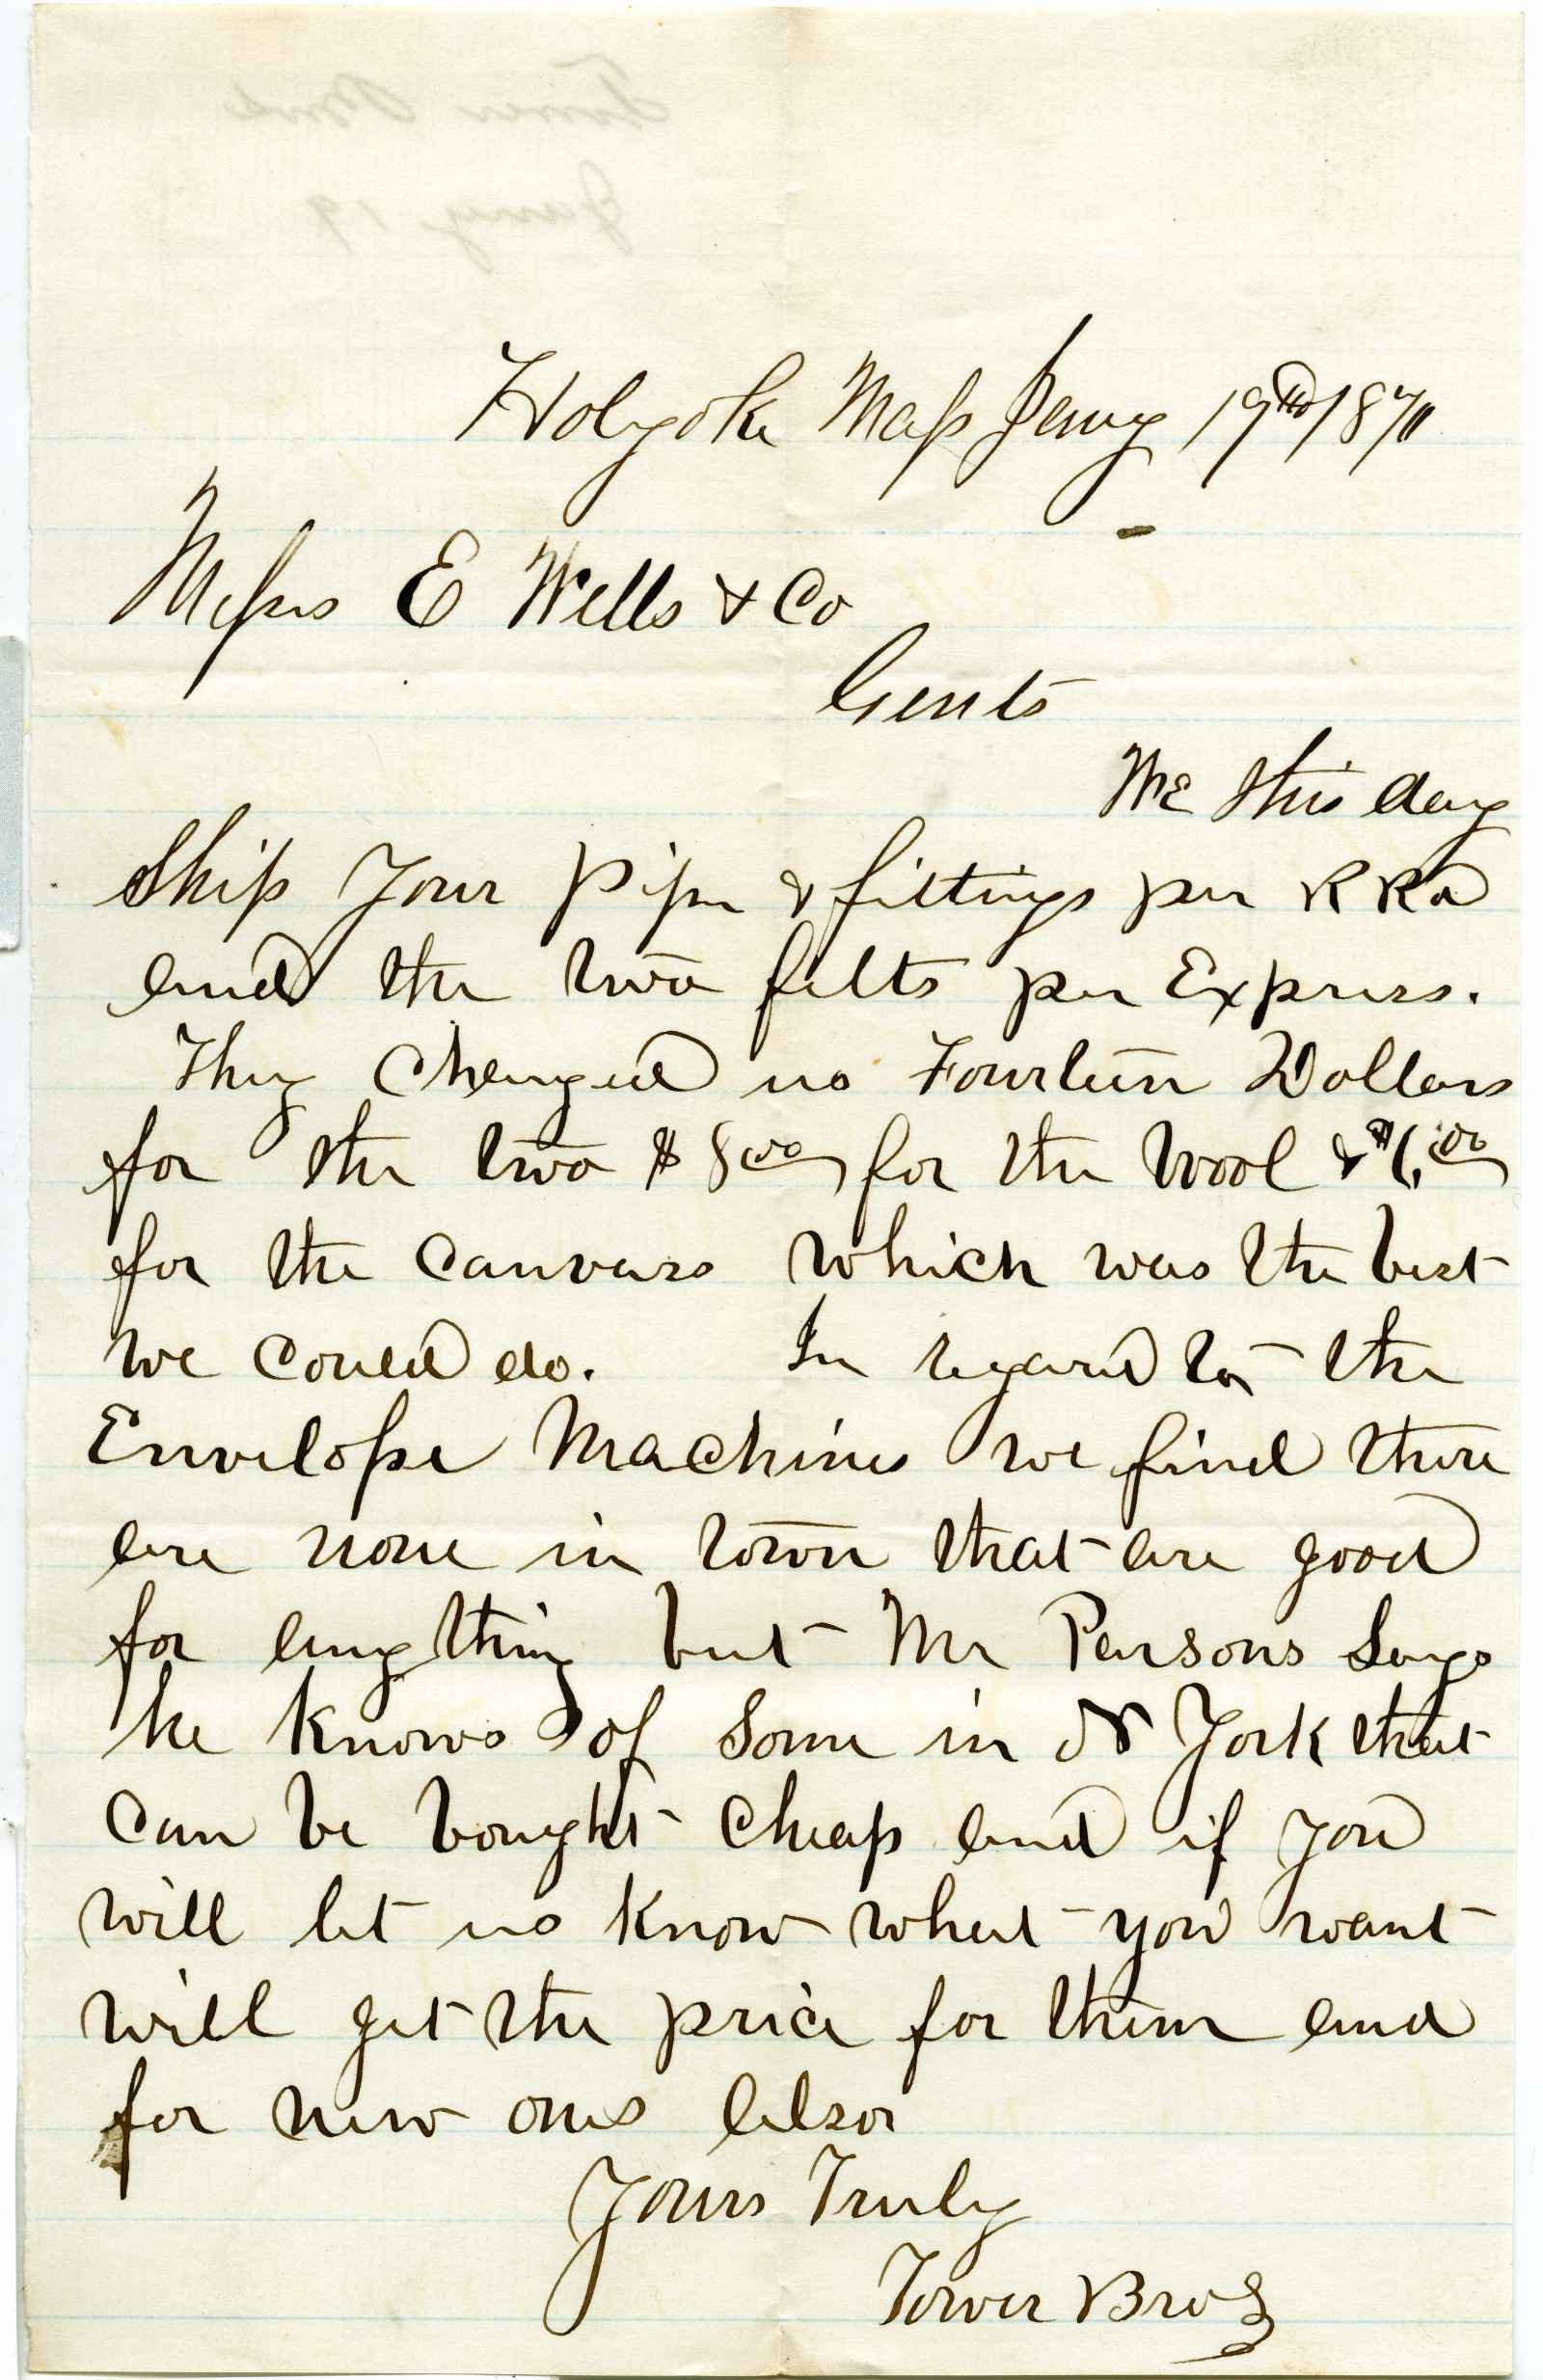 Holyoke Mass Jany 19th 1870
Messrs E Wells & Co
Gents
We this day
Ship Your Pipe & fittings per R Rd
and the two felts per Express.
They Charged us Fourteen Dollars
for the two $8.00 for the Wool & $6.00
for the Canvass which was the best
we could do. In regard to the
Envelope Machines we find there
are none in town that are good
for anything but Mr Parsons Says
he knows of Some in N York that
can be bought cheap and if you
will let us know what you want
will get the price for them and
for new ones also
Yours Truly
Tower Bros